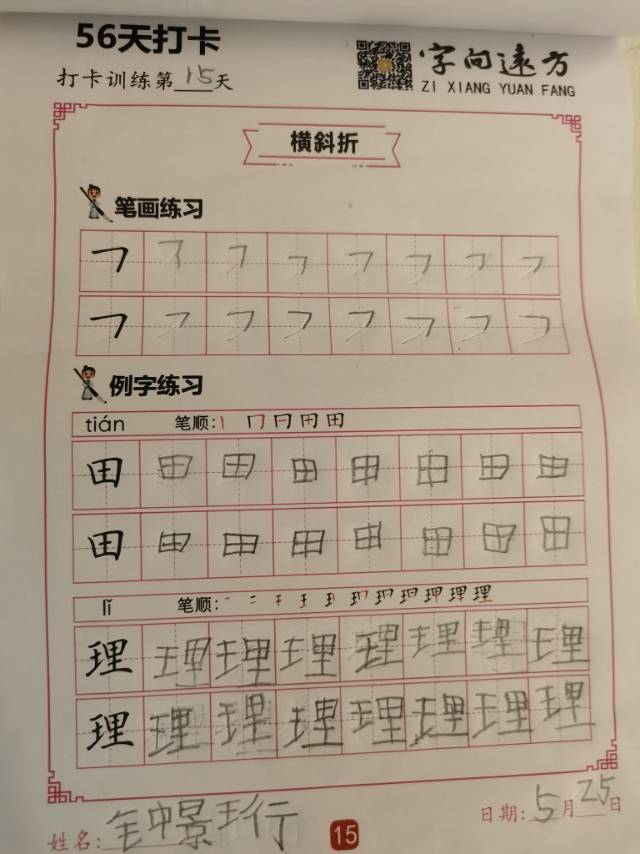 56天打卡
打卡训练第15天
字向远方
ZI XIANG YUAN FANG
横斜折
笔画练习
㇇ ㇇ ㇇ ㇇ ㇇ ㇇ ㇇ ㇇
㇇ ㇇ ㇇ ㇇ ㇇ ㇇ ㇇ ㇇
例字练习
tián 笔顺:丨 冂 冃 田 田
田 田 田 田 田 田 田 田
田 田 田 田 田 田 田 田
lǐ 笔顺:
理 理 理 理 理 理 理 理
理 理 理 理 理 理 理 理
姓名:钟景珩
15
日期:5月25日